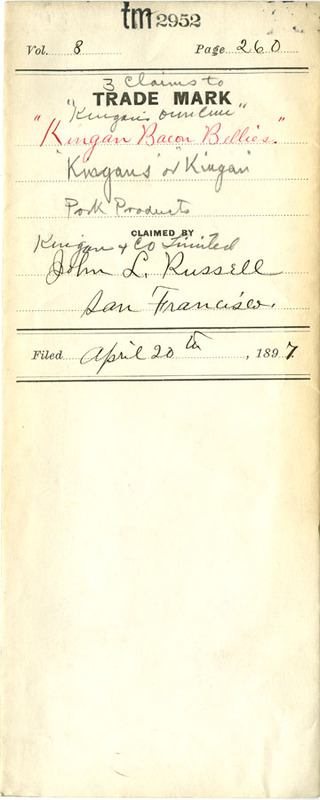 tm 2952
Vol. 8 Page 260
3 Claims to
TRADE MARK
"Kingan's
"Kingan Bacon Bellies."
"Kingans" or "Kingan"
Pork Products
CLAIMED BY
Kingan & Co Limited
John L. Russell
San Francisco.
Filed April 20th, 1897.